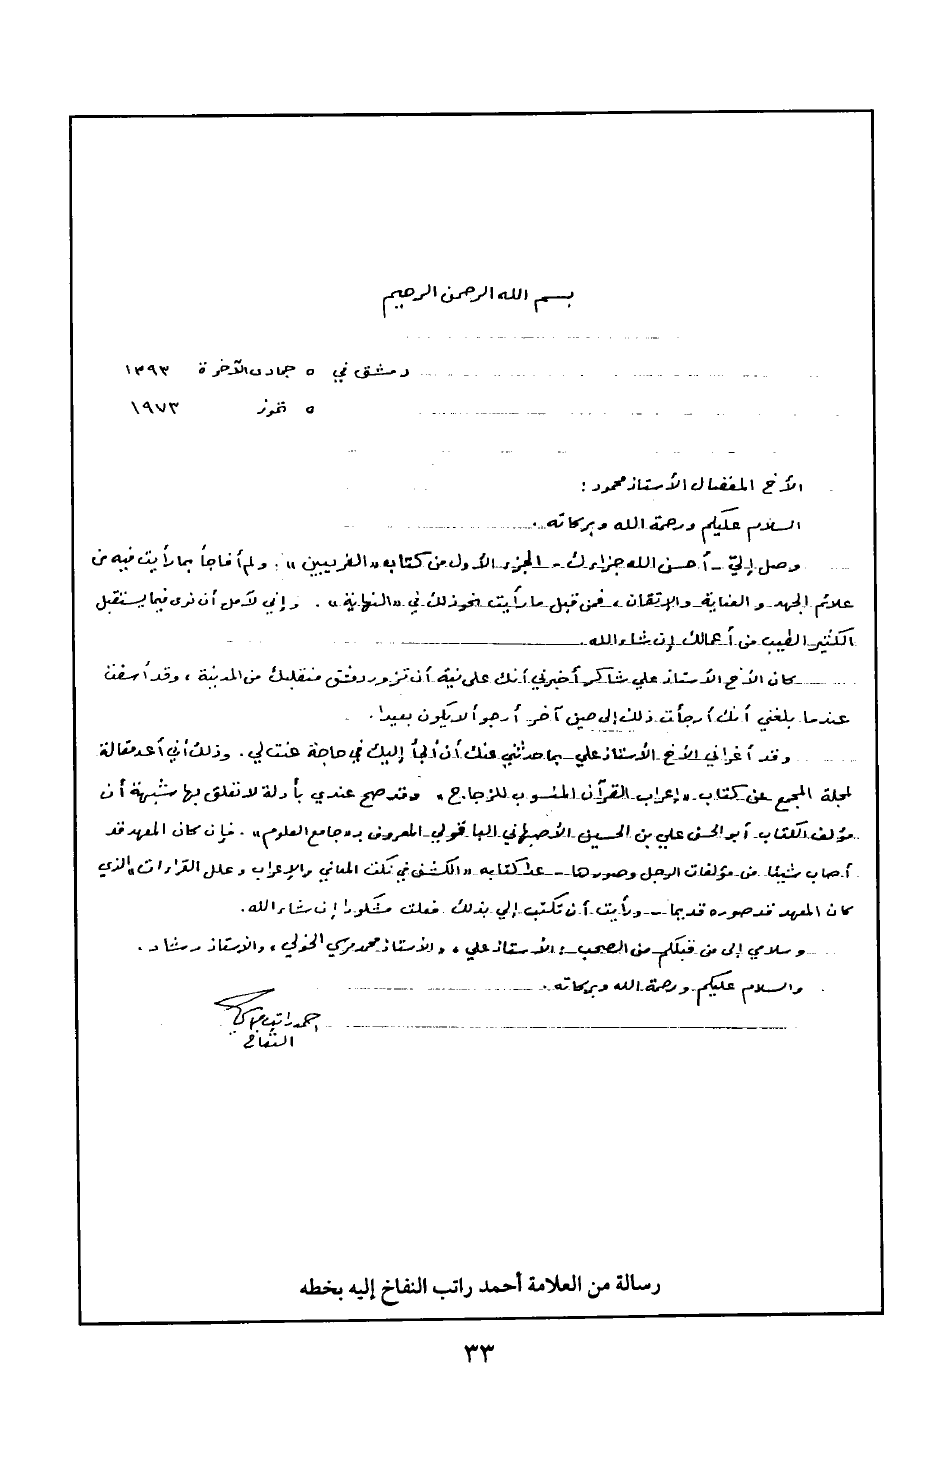 بسم الله الرحمن الرحيم
دمشق في ٥ جمادى الآخرة ١٣٩٣
٥ تموز ١٩٧٣
الأخ المفضال الأستاذ محمود :
السلام عليكم ورحمة الله وبركاته .
وصل إليّ - أحسن الله جزاءك - الجزء الأول من كتاب « الغريبين » . ولم أفاجأ بما رأيت فيه من
علائم الجهد والعناية والإتقان ، فمن قبل ما رأيت نحو ذلك في « النهاية » . وإني لآمل أن نرى فيما يستقبل
الكثير الطيب من أعمالك إن شاء الله .
كان الأخ الأستاذ علي شاكر أخبرني أنك على نية أن تزور دمشق منقلبك من المدينة ، وقد أسفت
عندما بلغني أنك أرجأت ذلك إلى حين آخر أرجو ألا يكون بعيدا .
وقد أغراني الأخ الأستاذ علي بما حدثني عنك أن ألجأ إليك في حاجة عنت لي . وذلك أني أعد مقالة
لمجلة المجمع عن كتاب « إعراب القرآن المنسوب للزجاج » وقد صح عندي بأدلة لا تعلق بها شبهة أن
مؤلف الكتاب أبو الحسن علي بن الحسين الأصبهاني الباقولي المعروف بـ « جامع العلوم » . فإن كان المعهد قد
أصاب شيئا من مؤلفات الرجل وصورها - عدا كتابه « الكشف في نكت المعاني والإعراب وعلل القراءات » الذي
كان المعهد قد صوره قديما - ورأيت أن تكتب إلي بذلك فعلت مشكورا إن شاء الله .
وسلامي إلى من قبلكم من الصحب : الأستاذ علي ، والأستاذ محمد مرسي الخولي ، والأستاذ رشاد .
والسلام عليكم ورحمة الله وبركاته .
أحمد راتب
النفاخ
رسالة من العلامة أحمد راتب النفاخ إليه بخطه
٣٣